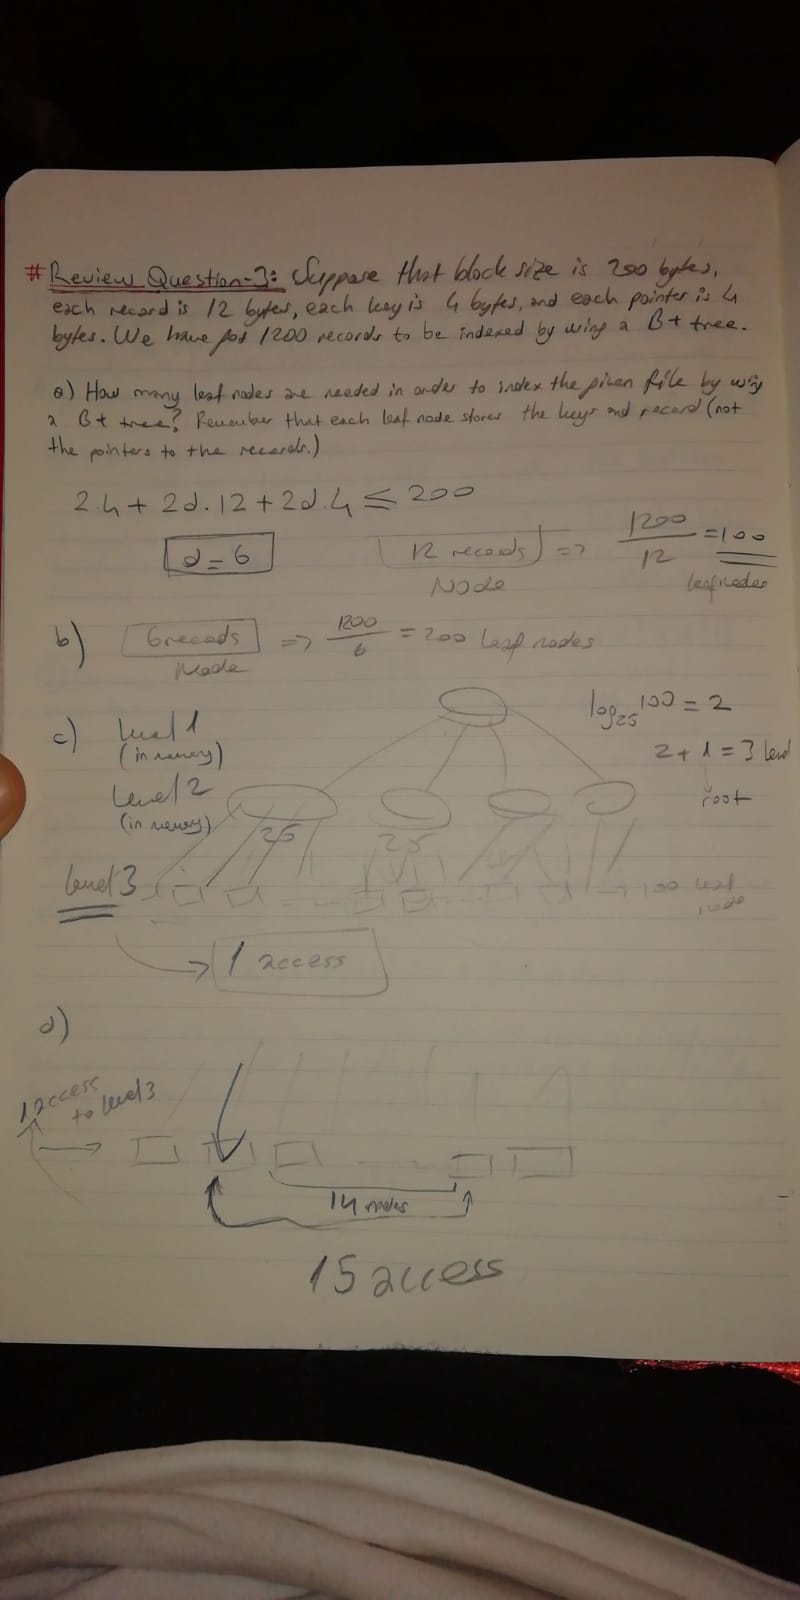 # Review Question-3: Suppose that block size is 200 bytes,
each record is 12 bytes, each key is 4 bytes, and each pointer is 4
bytes. We have got 1200 records to be indexed by using a B+ tree.
a) How many leaf nodes are needed in order to index the given file by using
a B+ tree? Remember that each leaf node stores the keys and record (not
the pointers to the records.)
2.4 + 2d.12 + 2d.4 ≤ 200
d = 6
12 records
Node
=> 1200/12 = 100
leaf nodes
b) 6 records
Node
=> 1200/6 = 200 Leaf nodes
c) Level 1
(in memory)
log₂₅100 = 2
2 + 1 = 3 level
root
Level 2
(in memory)
25 25
Level 3
100 leaf
node
1 access
d)
1 access
to level 3
14 nodes
15 access